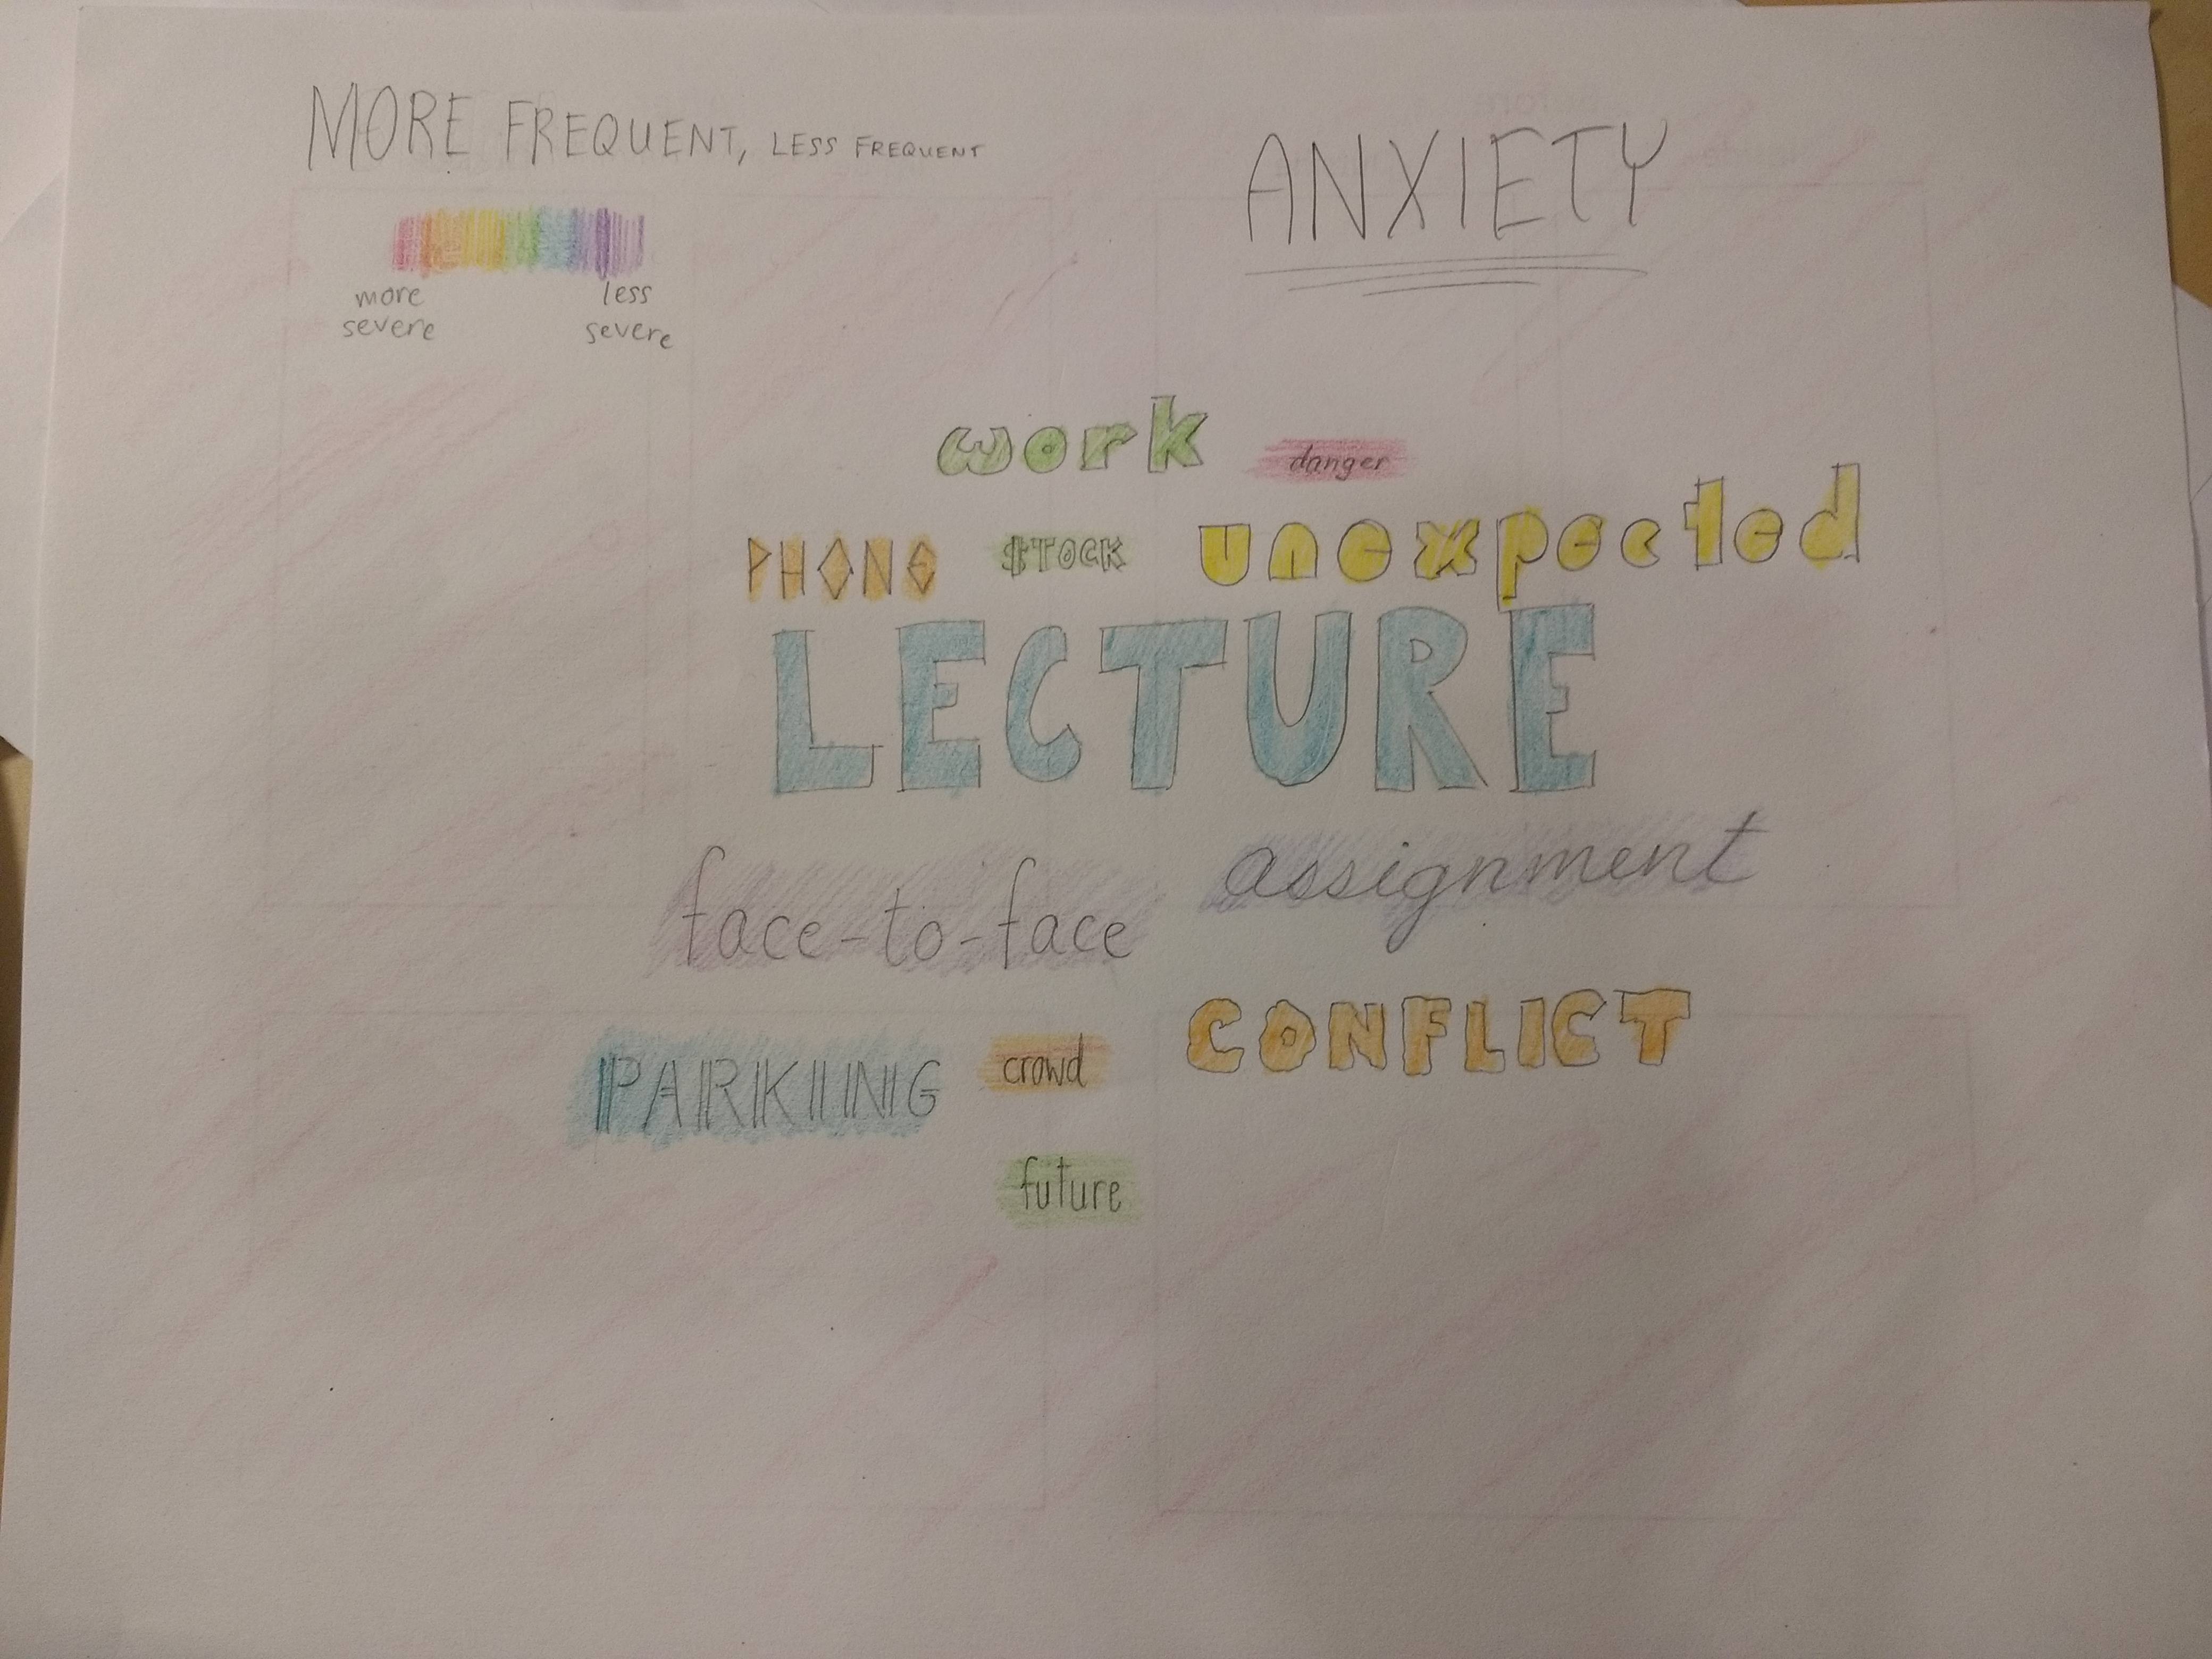 MORE FREQUENT, LESS FREQUENT
more severe
less severe
ANXIETY
work danger
PHONE $TOCK unexpected
LECTURE
face-to-face assignment
PARKING crowd CONFLICT
future